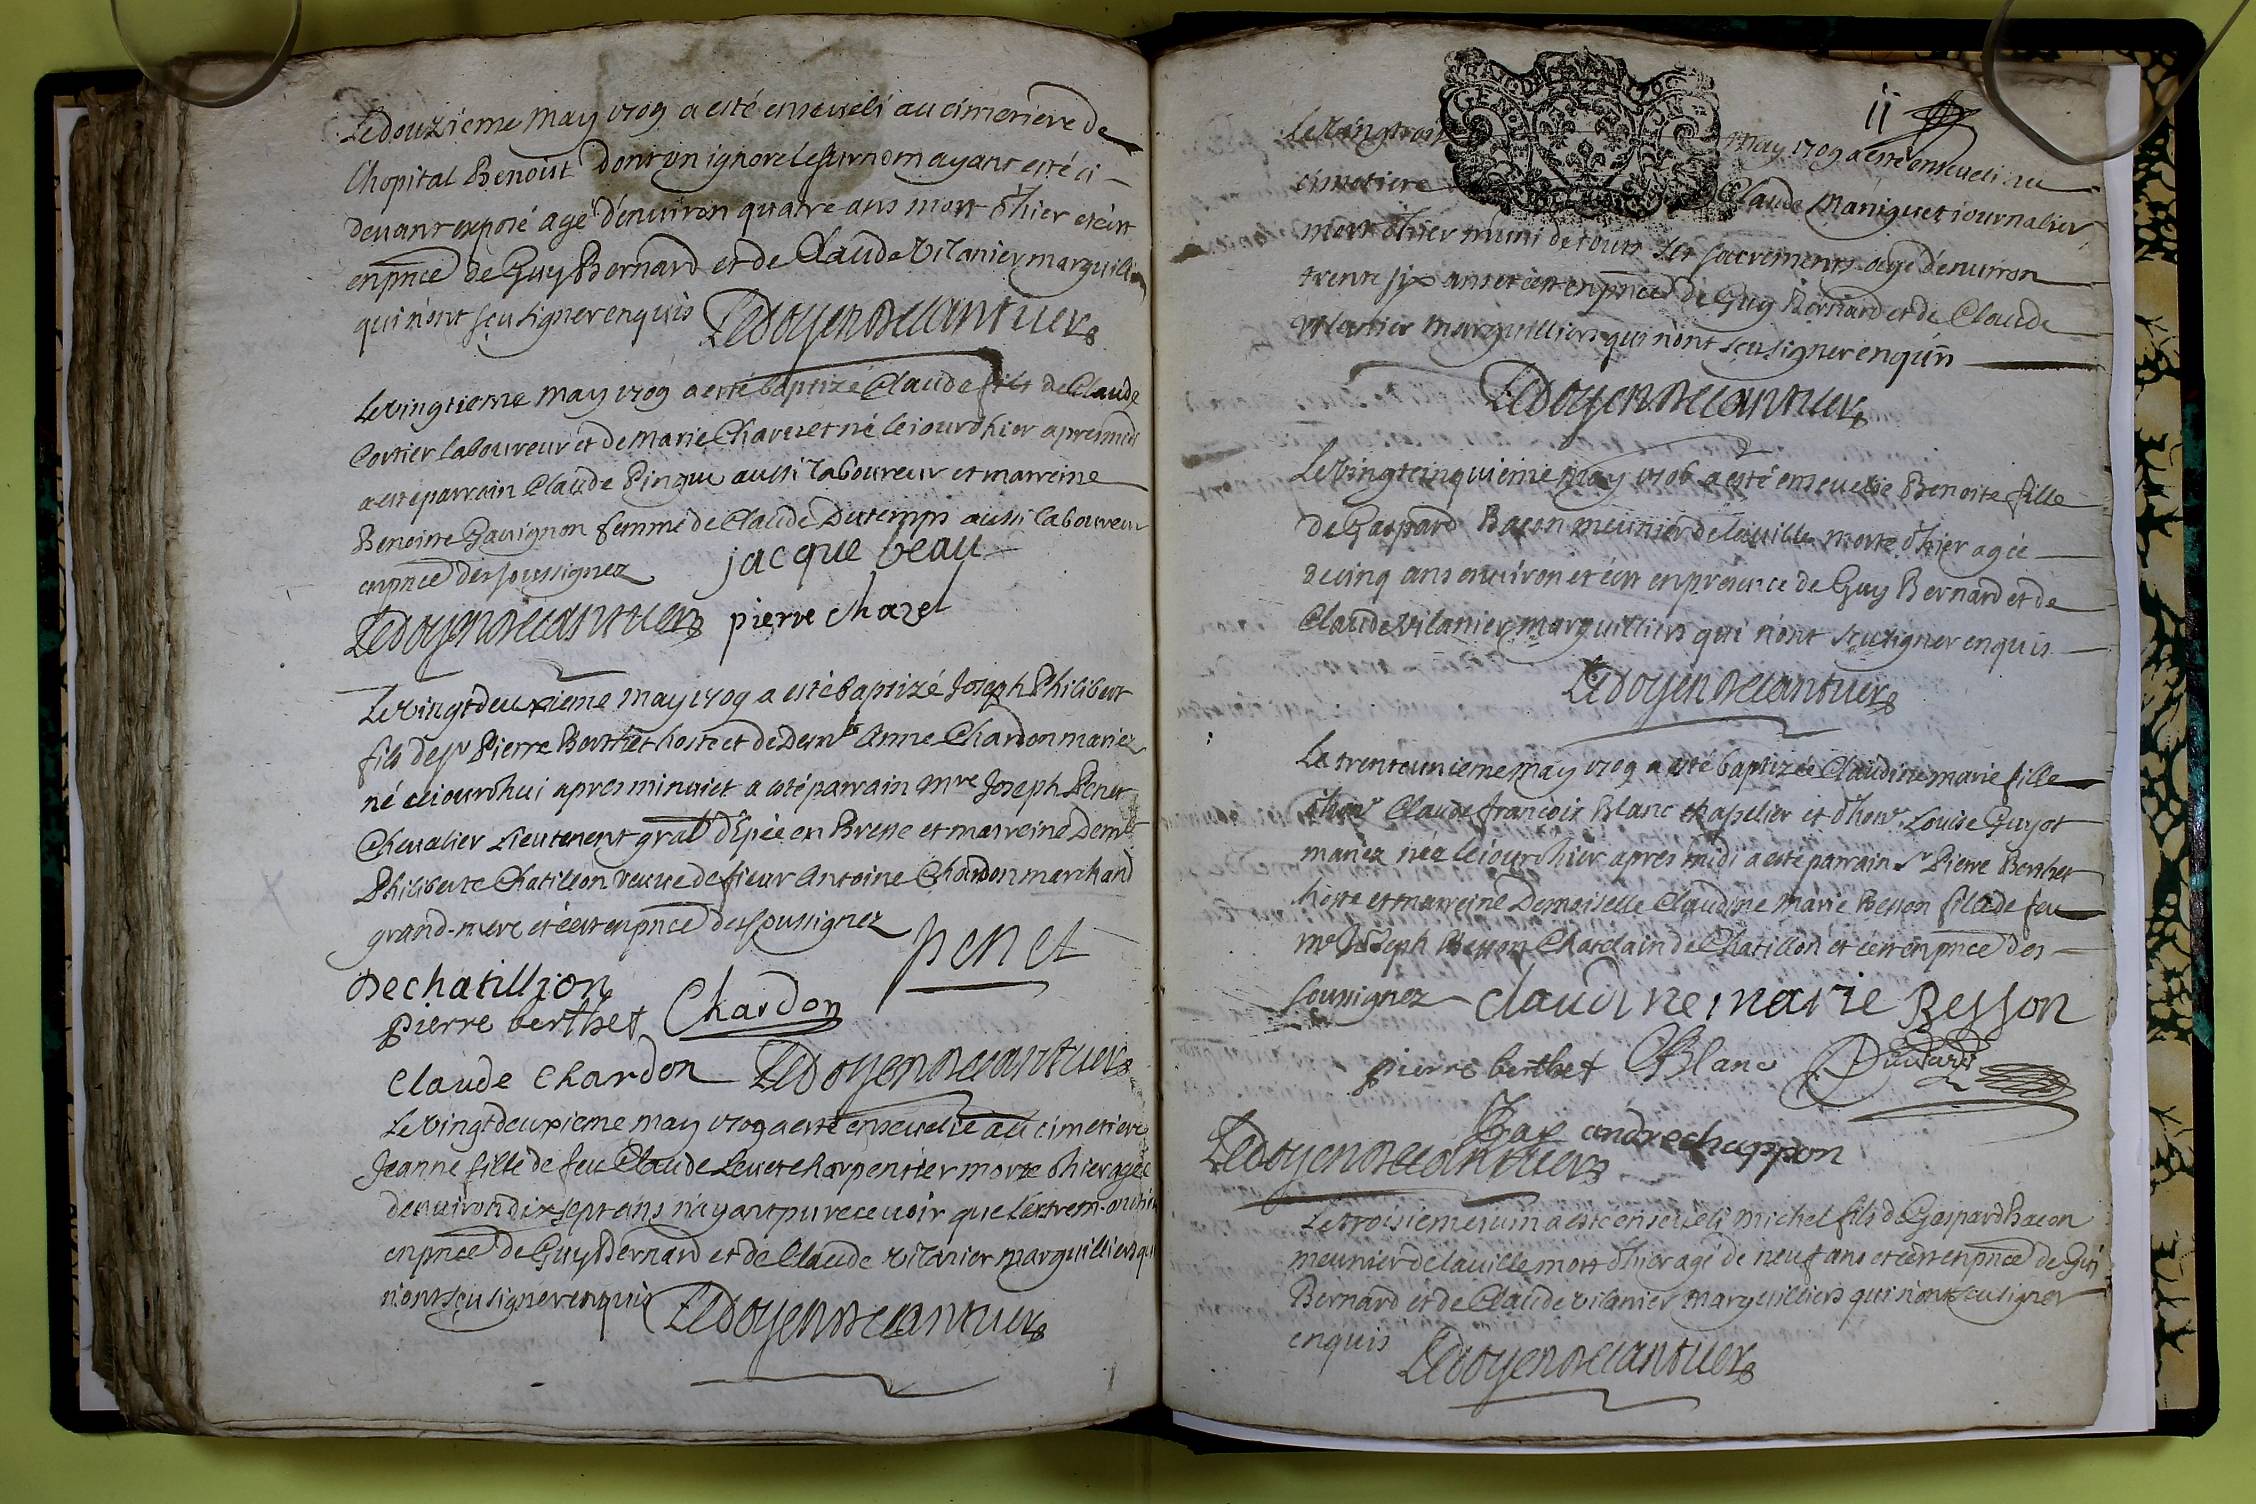 Le douzieme May 1709 a esté enseveli au cimetiere de
l'hopital Benoist dont on ignore le surnom ayant esté ci-
devant exposé agé d'environ quatre ans mort d'hier et c'est
en pnce de Guy Bernard et de Claude Vilanier marguilliers
qui n'ont sçu signer enquis Ledoyen
Le vingtieme May 1709 a esté baptizé Claude fils de Claude
Cortier laboureur et de Marie Charvet né le jour d'hier apres midi
a esté parrain Claude Pingue aussi laboureur et marreine
Benoite Gavignon femme de Claude Dutemps aussi laboureur
en pnce des soussignez jacque beau
Ledoyen pierre chazel
Le vingt deuxieme May 1709 a esté baptizé Joseph Philibert
fils de sr Pierre Berthet hoste et de Demlle Anne Chardon mariez
né ce jourd'hui apres minuict a esté parrain Mre Joseph Penet
Chevalier Lieutenent gral d'Epée en Bresse et marreine Demlle
Philiberte Chatillon veuve de sieur Antoine Chardon marchand
grand-mere et c'est en pnce des soussignez penet
Dechatillion
pierre berthet Chardon
Claude Chardon Ledoyen
Le vingt deuxieme May 1709 a esté ensevelie au cimetiere
Jeanne fille de feu Claude Levet charpentier morte d'hier agée
d'environ dix sept ans n'ayant pu recevoir que l'extrem-onction
en pnce de Guy Bernard et de Claude Vilanier marguilliers qui
n'ont sçu signer enquis Ledoyen
ii
Le vingt trois May 1709 a esté enseveli au
cimetiere Claude Maniguet journalier
mort d'hier muni de tous ses sacrements agé d'environ
trente six ans et c'est en pnce de Guy Bernard et de Claude
Vilanier marguilliers qui n'ont sçu signer enquis
Ledoyen
Le vingt cinquieme May 1706 a esté ensevelie Benoite fille
de Gaspard Bacon meunier de la ville morte d'hier agée
de cinq ans environ et c'est en presence de Guy Bernard et de
Claude Vilanier marguilliers qui n'ont sçu signer enquis
Ledoyen
Le trente unieme May 1709 a esté baptizée Claudine marie fille
d'hon. Claude françois Blanc chapelier et d'hon. Louise Guyot
mariez née le jour d'hier apres midi a esté parrain sr Pierre Berthet
hoste et marreine Demoiselle Claudine Marie Besson fille de feu
Mr Joseph Besson Chatelain de Chatillon et c'est en pnce des
soussignez claudine marie Besson
pierre berthet Blanc
andre chappon
Ledoyen
Le troisieme juin a esté enseveli Michel fils de Gaspard Bacon
meunier de la ville mort d'hier agé de neuf ans et c'est en pnce de Gui
Bernard et de Claude Vilanier marguilliers qui n'ont sçu signer
enquis Ledoyen